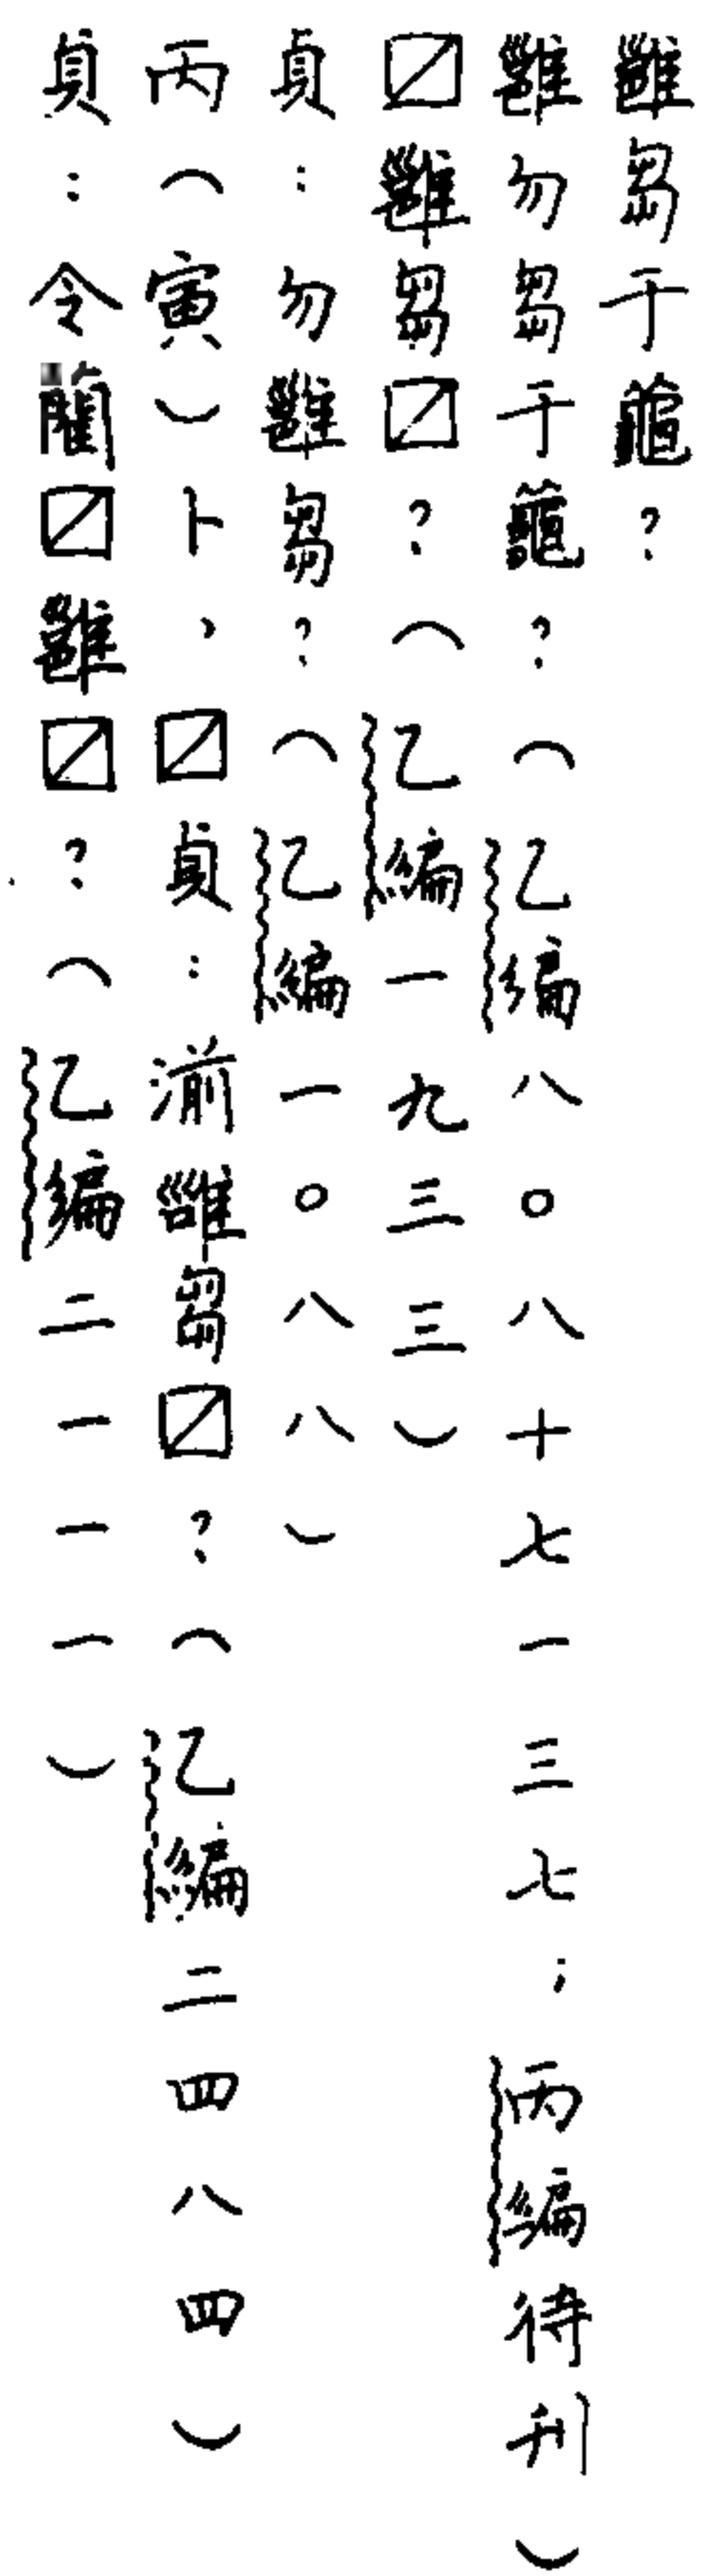 雝芻于𪚰?
雝勿芻于𪚰?(乙編八〇八十七一三七;丙編待刊)
☒雝芻☒?(乙編一九三三)
貞:勿雝芻?(乙編一〇八八)
丙(寅)卜,☒貞:湔雝芻☒?(乙編二四八四)
貞:令☒雝☒?(乙編二一一一)